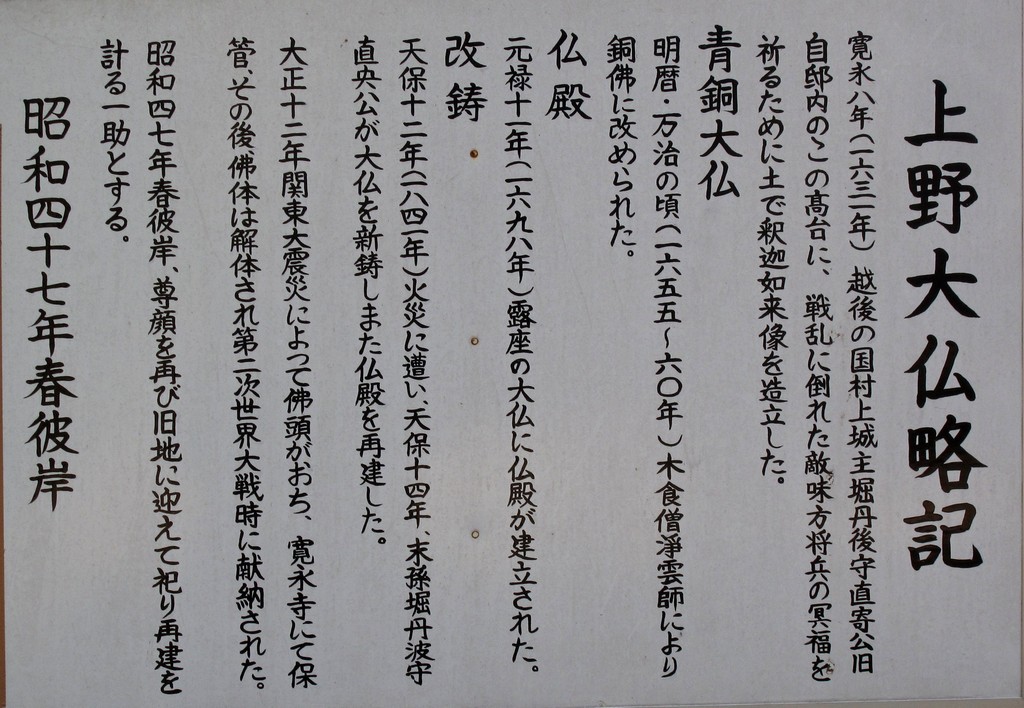 上野大仏略記
寛永八年(一六三一年)越後の国村上城主堀丹後守直寄公旧
自邸内のこの高台に、戦乱に倒れた敵味方将兵の冥福を
祈るために土で釈迦如来像を造立した。
青銅大仏
明暦・万治の頃(一六五五～六〇年)木食僧淨雲師により
銅佛に改められた。
仏殿
元禄十一年(一六九八年)露座の大仏に仏殿が建立された。
改鋳
天保十二年(一八四一年)火災に遭い、天保十四年、末孫堀丹波守
直央公が大仏を新鋳しまた仏殿を再建した。
大正十二年関東大震災によって佛頭がおち、寛永寺にて保
管、その後、佛体は解体され第二次世界大戦時に献納された。
昭和四七年春彼岸、尊顔を再び旧地に迎えて祀り再建を
計る一助とする。
昭和四十七年春彼岸